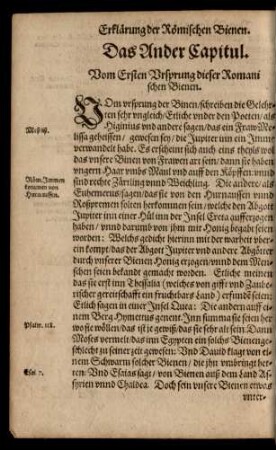 Erklärung der Römischen Bienen.
Das Ander Capitul.
Vom Ersten Vrsprung dieser Romani
schen Bienen.
VOm vrsprung der Binen/schreiben die Gelehr-
ten sehr vngleich/Etliche vnder den Poeten/ als
Higinius vnd andere sagen/ das ein Fraw Me-
lissa geheissen/ gewesen sey/ die Jupiter inn ein Jmme
verwandelt habe. Es erscheint sich auch eins theyls wol
das vnsere Binen von Frawen art sein/ dann sie haben
vngern Haar vmbs Maul vnd auff den Köpffen: vnnd
sind rechte Zärtling vnnd Weichling. Die andere/ als
Euhemerus sagen/ das sie von den Hurnaussen vnnd
Roßpremen solten herkommen sein/ welche den Abgott
Jupiter inn einer Hül inn der Insel Creta aufferzogen
haben/ vnnd darumb von jhm mit Honig begabt seien
worden: Welchs gedicht hierinn mit der warheit vber-
ein kompt/ das der Abgott Jupiter vnd andere Abgötter
durch vnserer Bienen Honig erzogen/ vnnd dem Men-
schen seien bekandt gemacht worden. Etliche meinen
das sie erst inn Thessalia (welches von gifft vnd Zaube-
rischer gereinschafft ein fruchtbars Land) erfunde seien:
Etlich sagen in einer Insel Cuea: Die andern auff einem
Berg Hymettus genent. Jnn summa sie seien her
wo sie wöllen/ das ist je gewiß/ das sie sehr alt sein. Dann
Moses vermelt/ das inn Egypten ein solchs Bienenge-
schlecht zu seiner zeit gewesen: Vnd Dauid klagt von ei-
nem Schwarm solcher Bienen/ die jhn vmbringt het-
ten: Vnd Esaias sagt/ von Bienen auß dem Land As-
syrien vnnd Chaldea. Doch sein vnsere Bienen etwas
vnter-
Röm. Jmmen
kommen von
Hurnaussen.
Psalm. 118.
Esa. 7.